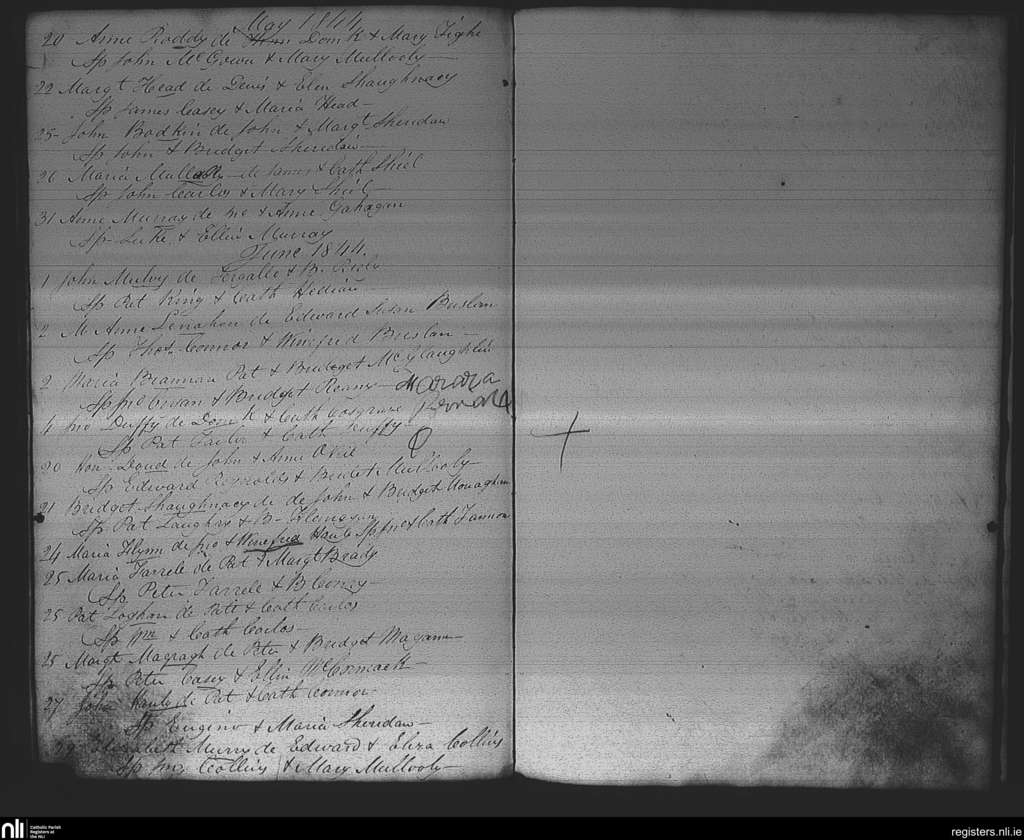 May 1844
20 Anne Roddy de Domk & Mary Tighe
Sp John McGowan & Mary Mullooly
22 Margt Head de Denis & Elen Shaughnacy
Sp James Casey & Maria Head
25 John Bodkin de John & Margt Sheridan
Sp John & Bridget Sheridan
26 Maria de James & Cath Shiel
Sp John Carlos & Mary Shiel
31 Anne Murray de Jno & Anne Gahagan
Sp Luke & Ellin Murray
June 1844.
1 John Mulvy de & B.
Sp Pat King & Cath Hedian
2 M Anne Lenahan de Edward Susan Breslan
Sp Thos Connor & Winefrid Breslan
2 Maria Brannan Pat & Bridget McGlaughlin
Sp Jno Cowan & Bridget Roany
4 Jno Duffy de Domk & Cath Cosgrave
Sp Pat Taylor & Cath Duffy
20 Hon. Doud de John & Anne
Sp Edward Reynolds & Bridet Mullooly
21 Bridget Shaughnacy de de John & Bridget Monaghan
Sp Pat Laughny & B.
24 Maria Flynn de Jno & Winefrid Hanly Sp Jno & Cath Fannon
25 Maria Farrell de Pat & Margt Beady
Sp Peter Farrell & B Conry
25 Pat Loghan de Patt & Cath Carlos
Sp Wm & Cath Carlos
25 Margt Magragh de Peter & Bridget Magann
Sp Peter Casey & Ellin McCormack
27 John Hanly de Pat & Cath Connor
Sp Eugino & Maria Sheridan
Elizabeth Murry de Edward & Eliza Collins
Sp Collins & Mary Mullooly
nli
Catholic Parish
Registers at
the NLI
registers.nli.ie